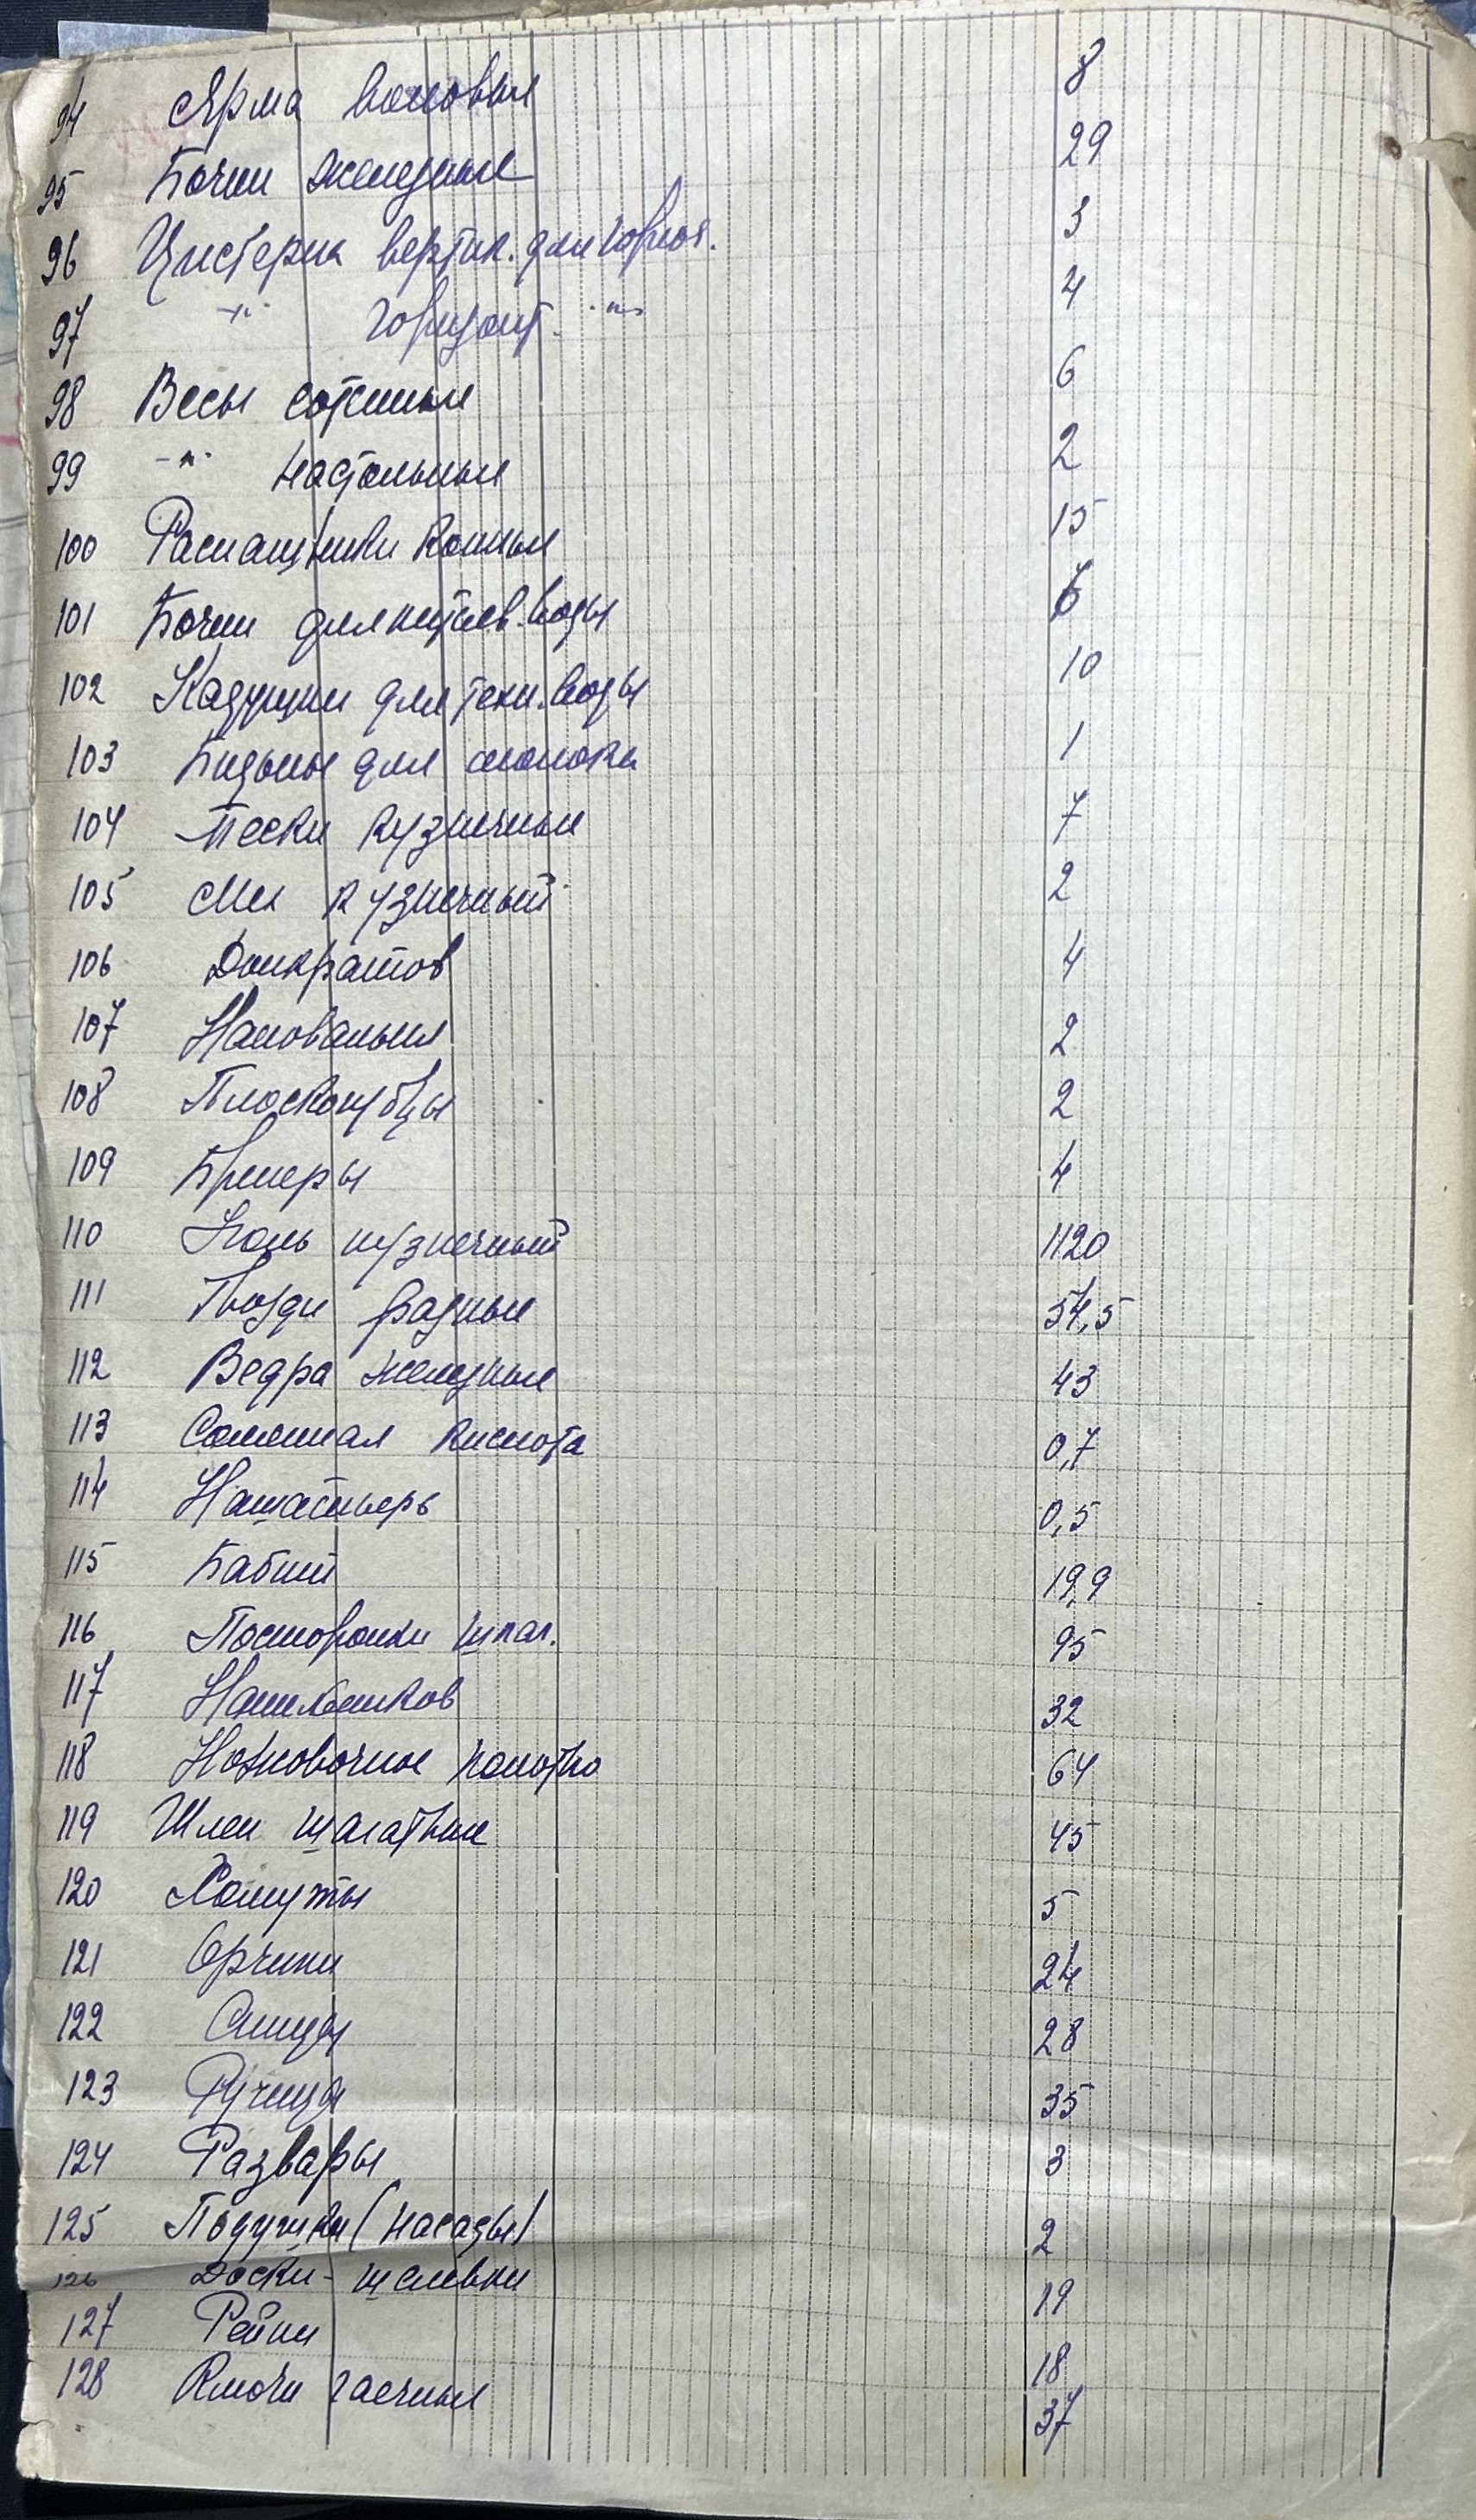 94 Ярма воловые 8
95 Бочки железные 29
96 Цистерна вертик. для горюч. 3
97 -"- горизонт. -"- 4
98 Весы сотенные 6
99 -"- настольные 2
100 Распашники конные 15
101 Бочки для питьев. воды
102 Кадушки для техн. воды 10
103 Бидоны для молока 1
104 Тески кузнечные 7
105 Мех кузнечный 2
106 Домкратов 4
107 Наковальня 2
108 Плоскогубцы 2
109 4
110 Уголь кузнечный 1120
111 Гвозди разные 54,5
112 Ведра железные 43
113 Соленная кислота 0,7
114 Нашатырь 0,5
115 Бабит 19,9
116 Посторонки шпаг. 95
117 Нашильников 32
118 Ножовочное полотно 64
119 Шлеи шпагатные 45
120 Хомуты 5
121 Орчики 24
122 Спицы 28
123 35
124 Развары 3
125 Подушки (насады) 2
126 Доски-шелевки 19
127 Рейки 18
128 Ключи гаечные 37